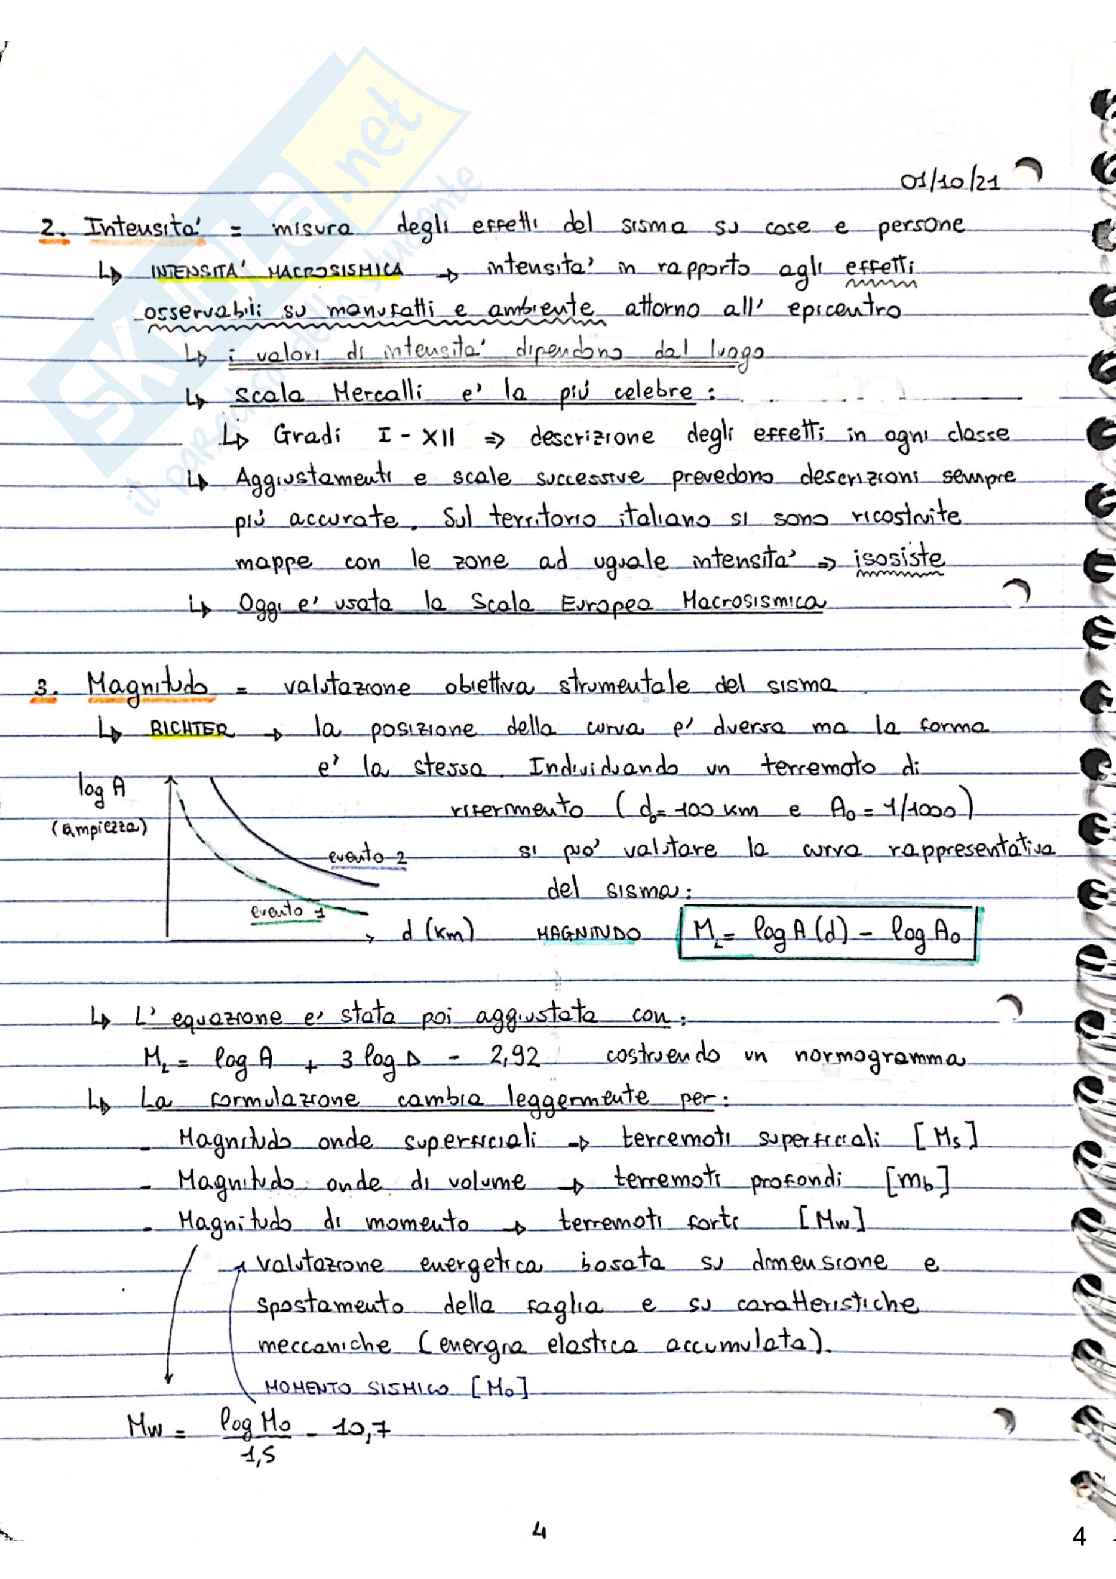 01/10/21
2. Intensita' = misura degli effetti del sisma su cose e persone
↳ INTENSITA' MACROSISMICA → intensita' in rapporto agli effetti
osservabili su manufatti e ambiente attorno all' epicentro
↳ i valori di intensita' dipendono dal luogo
↳ Scala Mercalli e' la piú celebre :
↳ Gradi I - XII ⇒ descrizione degli effetti in ogni classe
↳ Aggiustamenti e scale successive prevedono descrizioni sempre
piú accurate. Sul territorio italiano si sono ricostruite
mappe con le zone ad uguale intensita' ⇒ isosiste
↳ Oggi e' usata la Scala Europea Macrosismica
3. Magnitudo = valutazione obiettiva strumentale del sisma
↳ RICHTER → la posizione della curva e' diversa ma la forma
e' la stessa. Individuando un terremoto di
riferimento ( d₀= 100 km e A₀ = 1/1000 )
si puo' valutare la curva rappresentativa
del sisma:
log A
(ampiezza)
evento 2
evento 1
d (km)
MAGNITUDO M_L = log A (d) - log A₀
↳ L' equazione e' stata poi aggiustata con:
M_L = log A + 3 log D - 2,92 costruendo un normogramma
↳ La formulazione cambia leggermente per:
- Magnitudo onde superficiali → terremoti superficiali [Ms]
- Magnitudo onde di volume → terremoti profondi [mb]
- Magnitudo di momento → terremoti forti [Mw]
→ valutazione energetica basata su dimensione e
spostamento della faglia e su caratteristiche
meccaniche (energia elastica accumulata).
MOMENTO SISMICO [M₀]
Mw = log M₀ / 1,5 - 10,7
4
4
SKUOLA.net